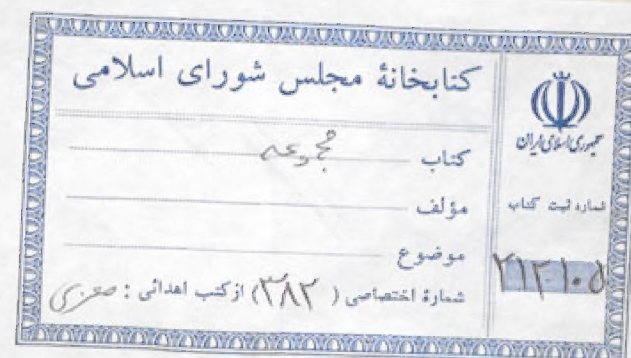 کتابخانهٔ مجلس شورای اسلامی
کتاب مجموعه
مؤلف
موضوع
شمارهٔ اختصاصی ( ۳۸۲ ) از کتب اهدائی :
جمهوری اسلامی ایران
شماره ثبت کتاب
۲۱۲۱۰۵